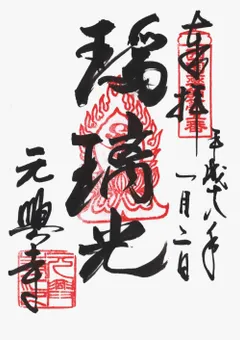 奉拝
平成十八年
一月二日
瑠璃光
元興寺